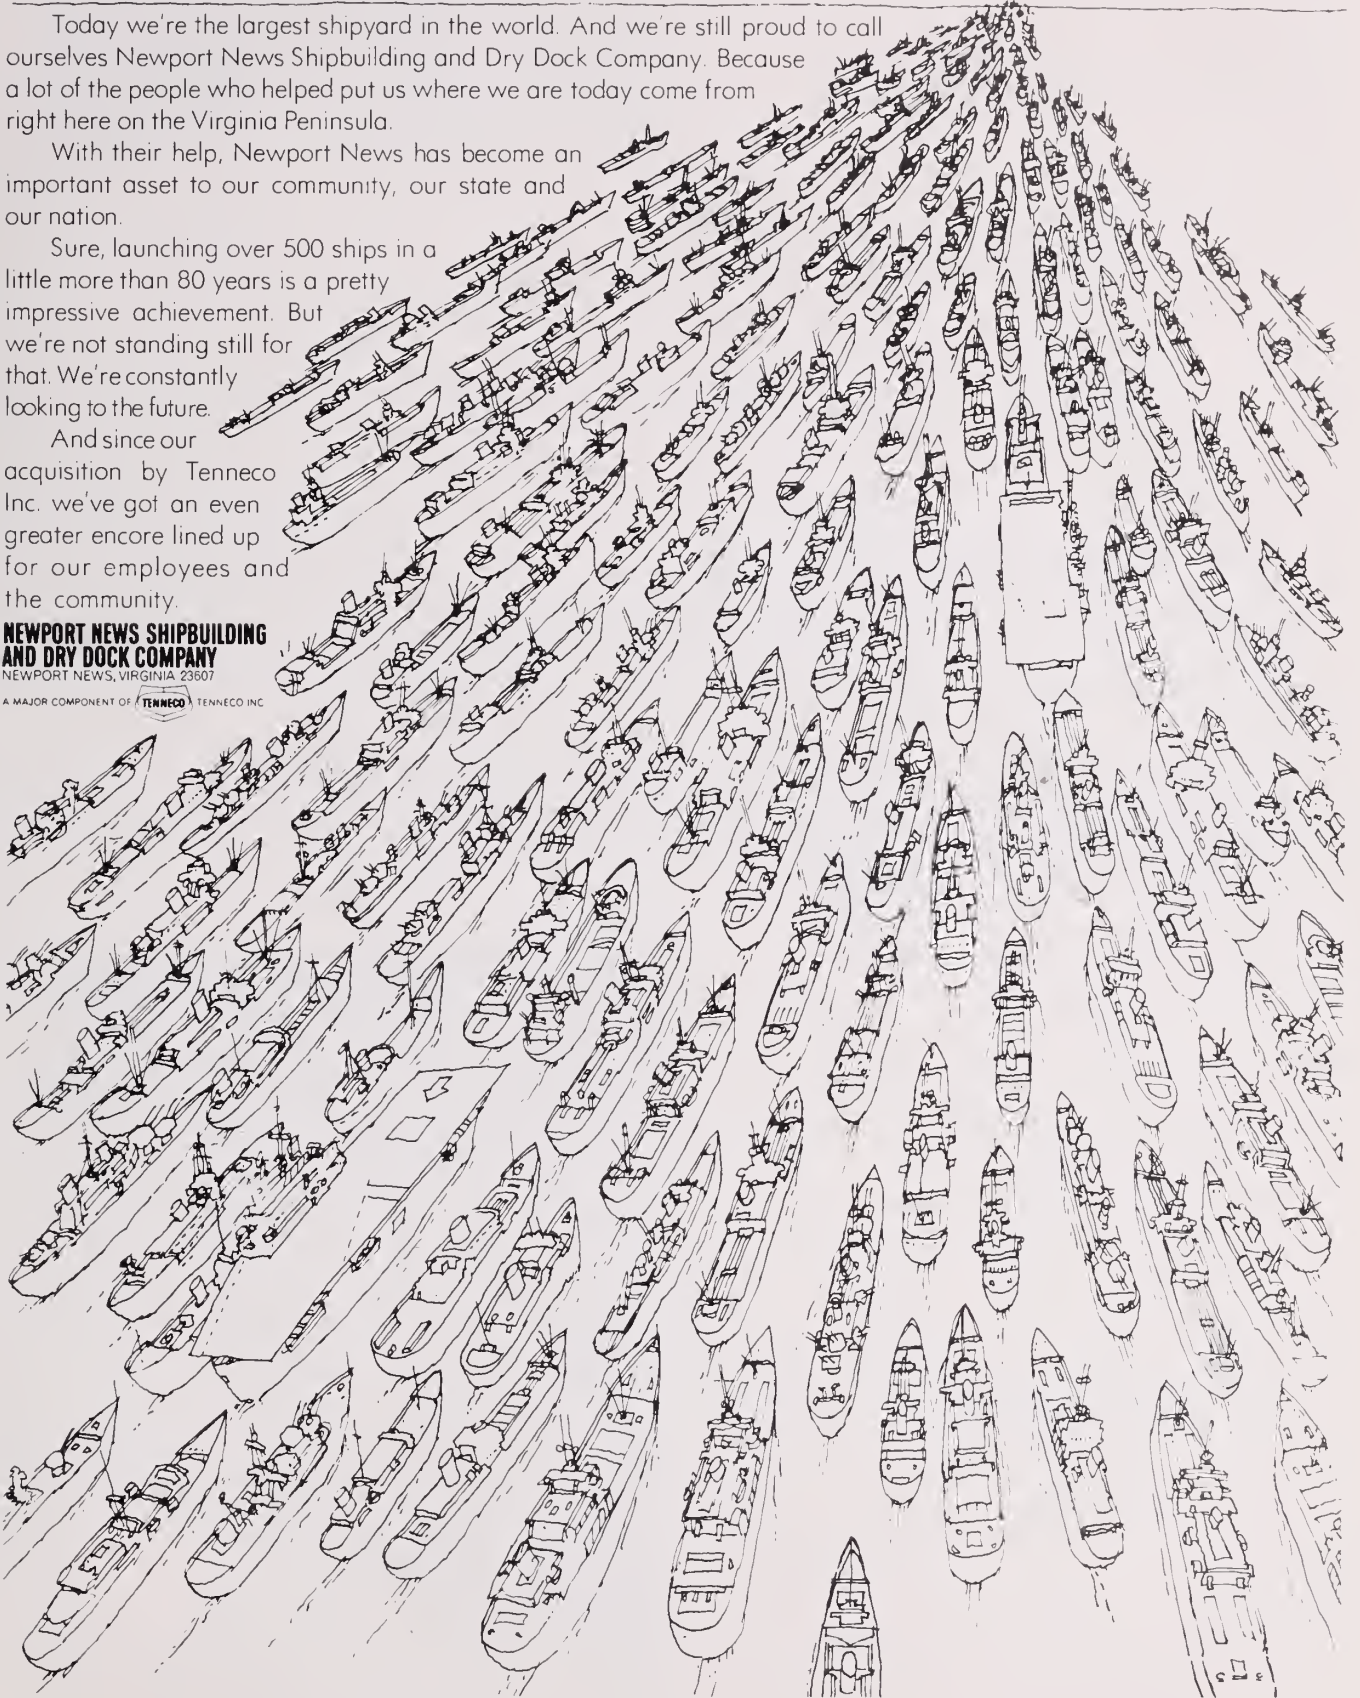 Today we're the largest shipyard in the world. And we're still proud to call
ourselves Newport News Shipbuilding and Dry Dock Company. Because
a lot of the people who helped put us where we are today come from
right here on the Virginia Peninsula.
With their help, Newport News has become an
important asset to our community, our state and
our nation.
Sure, launching over 500 ships in a
little more than 80 years is a pretty
impressive achievement. But
we're not standing still for
that. We're constantly
looking to the future.
And since our
acquisition by Tenneco
Inc. we've got an even
greater encore lined up
for our employees and
the community.
NEWPORT NEWS SHIPBUILDING
AND DRY DOCK COMPANY
NEWPORT NEWS, VIRGINIA 23607
A MAJOR COMPONENT OF TENNECO TENNECO INC